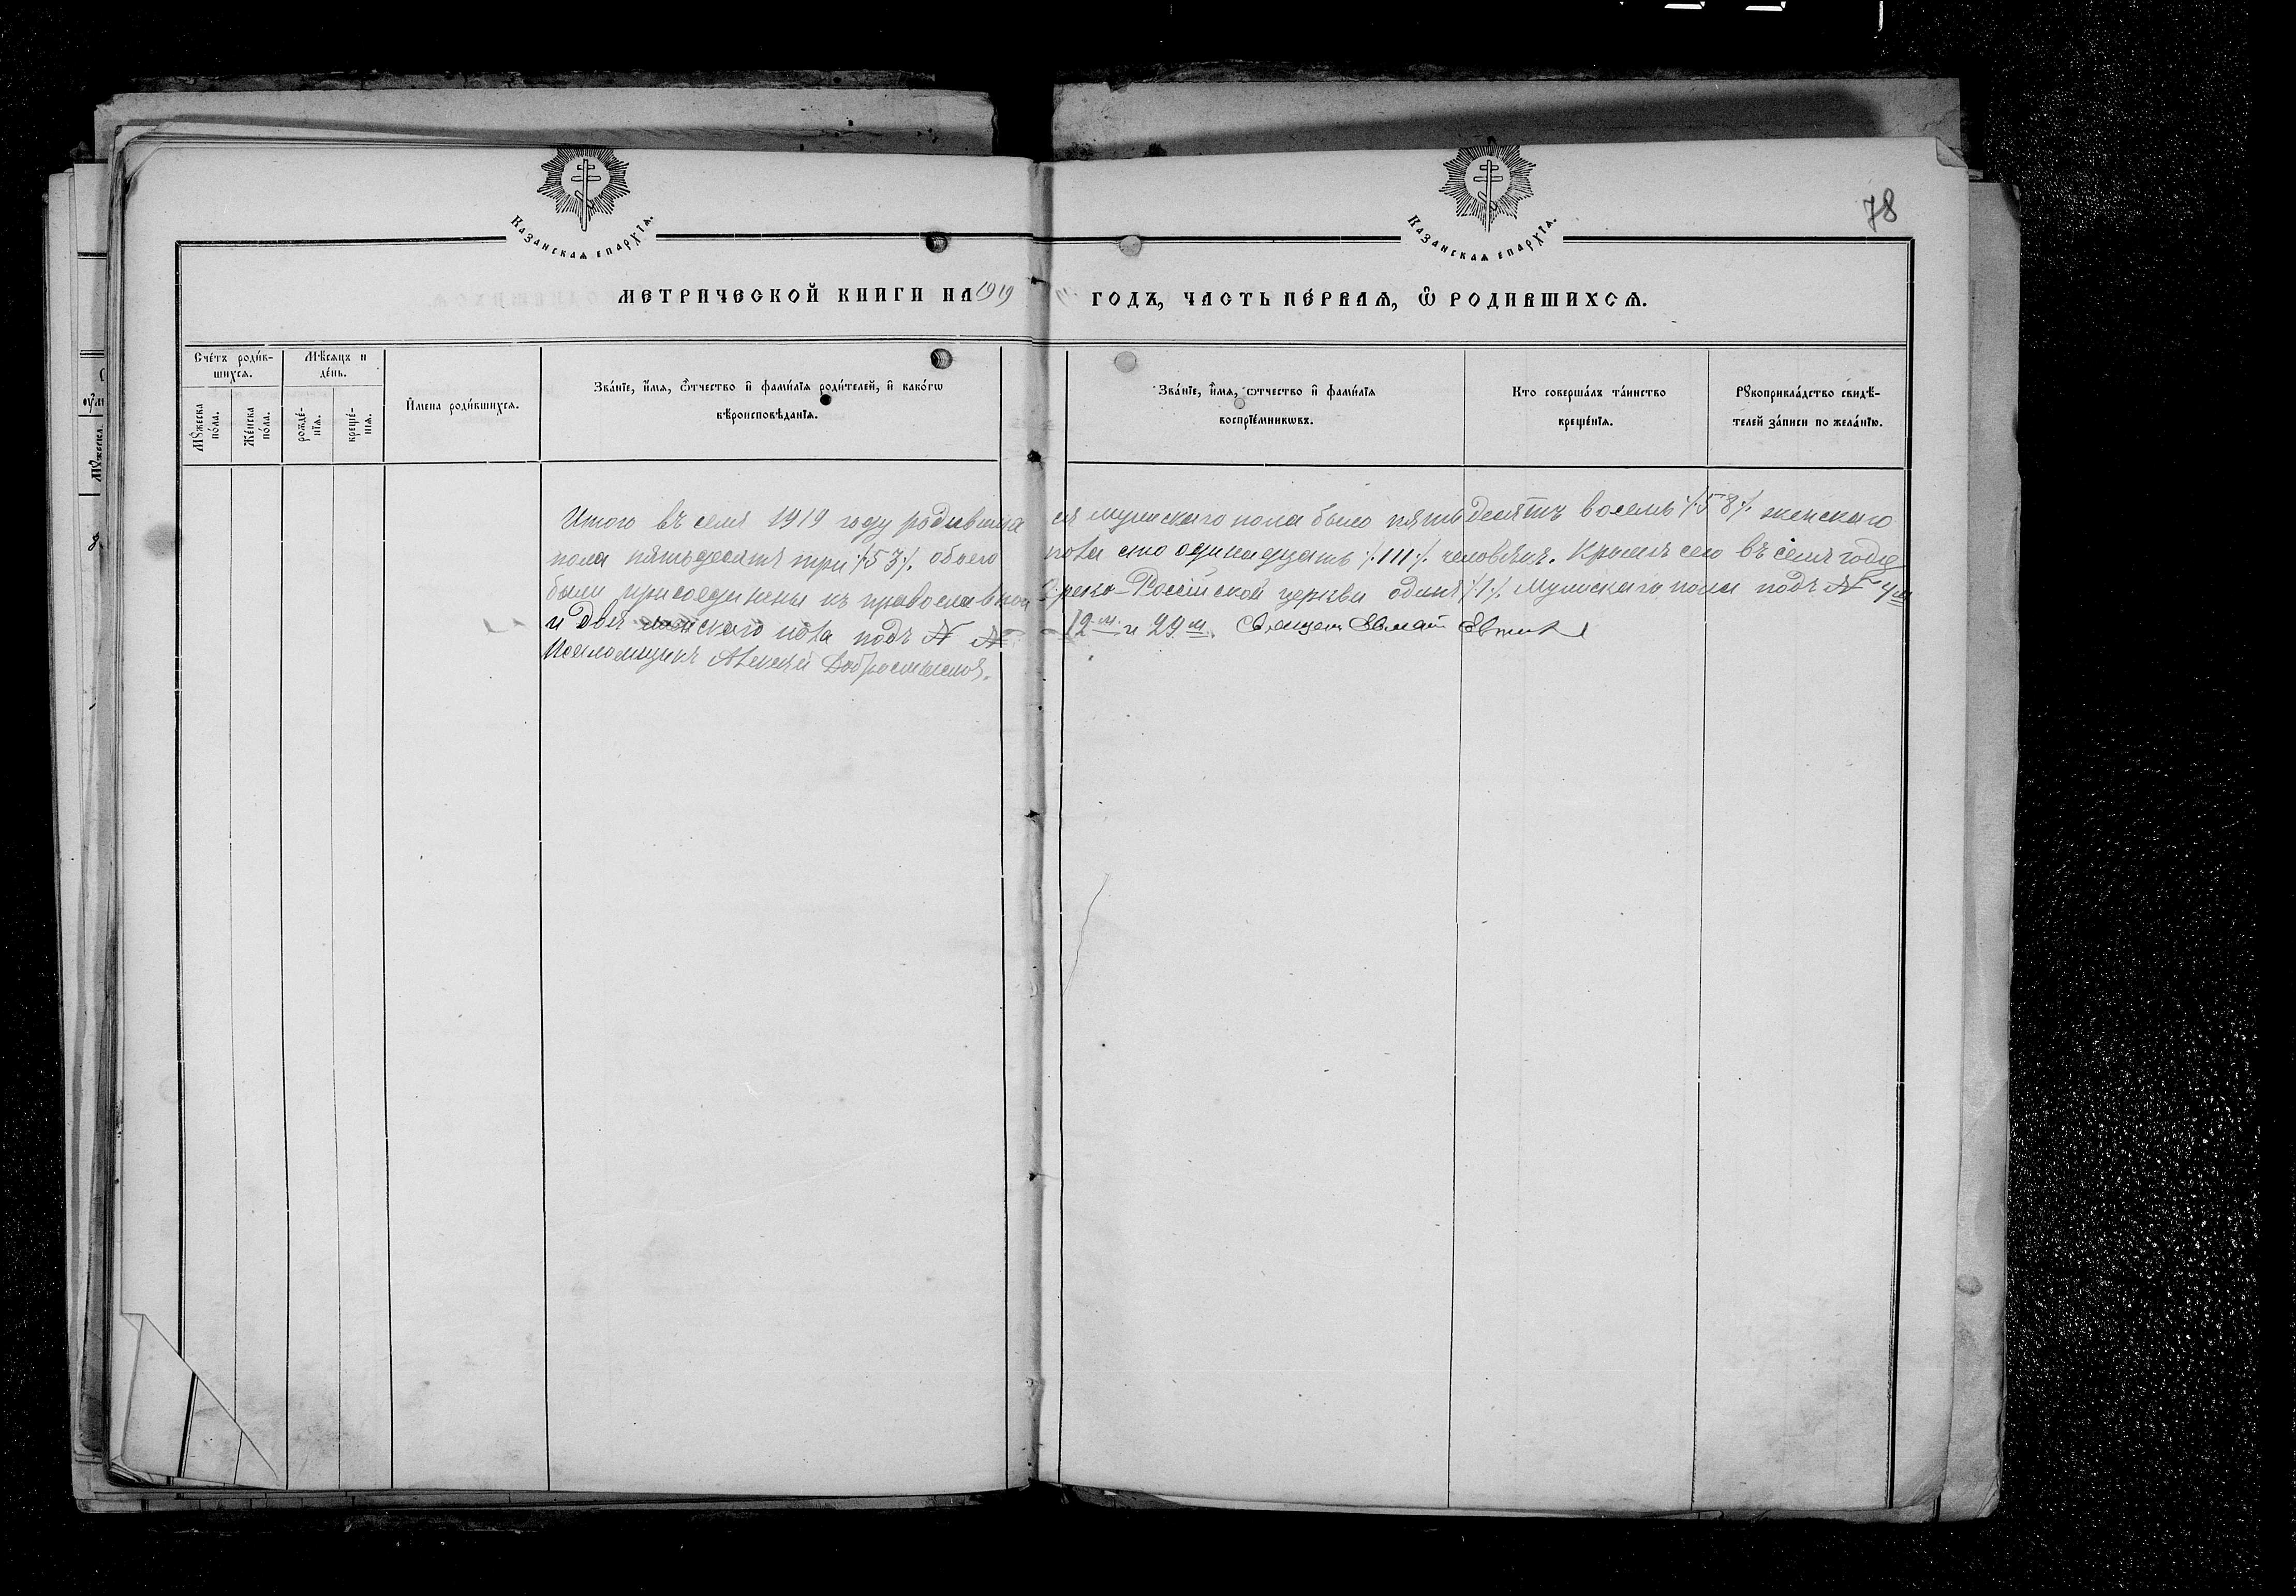 78
Казанскаѧ епархїѧ.
Казанскаѧ епархїѧ.
МЕТРИЧЕСКОЙ КНИГИ НА 1919 ГОДЪ, ЧАСТЬ ПЕ́РВАѦ, Ѽ РОДИВШИХСѦ.
Сче́тъ роди́в-
шихсѧ.
Мѣ́сѧцъ и
де́нь.
Мꙋ́жеска
по́ла.
Же́нска
по́ла.
рожде́-
нїѧ.
креще́-
нїѧ.
И҆мена роди́вшихсѧ.
Зва́нїе, и҆́мѧ, ѻ҆́тчество и҆ фами́лїѧ роди́телей, и҆ како́гѡ
вѣроисповѣ́данїѧ.
Зва́нїе, и҆́мѧ, ѻ҆́тчество и҆ фами́лїѧ
воспрїе́мникѡвъ.
Кто соверша́лъ та́инство
креще́нїѧ.
Рꙋкоприкла́дство свидѣ́-
телей за́писи по жела́нїю.
Итого въ семъ 1919 году родивших ся мужскаго пола было пятьдесятъ восемь ⁒58⁒ женскаго
пола пятьдесятъ три ⁒53⁒. обоего пола сто одинадцать ⁒111⁒. человѣкъ. Кромѣ сего въ семъ годѣ
были присоединены къ православной Греко-Россійской церкви одинъ ⁒1⁒ мужскаго пола подъ № 4м
и двѣ женскаго пола подъ № № 12м и 29м. Священ.
Псаломщикъ Алексѣй Добросмысловъ.